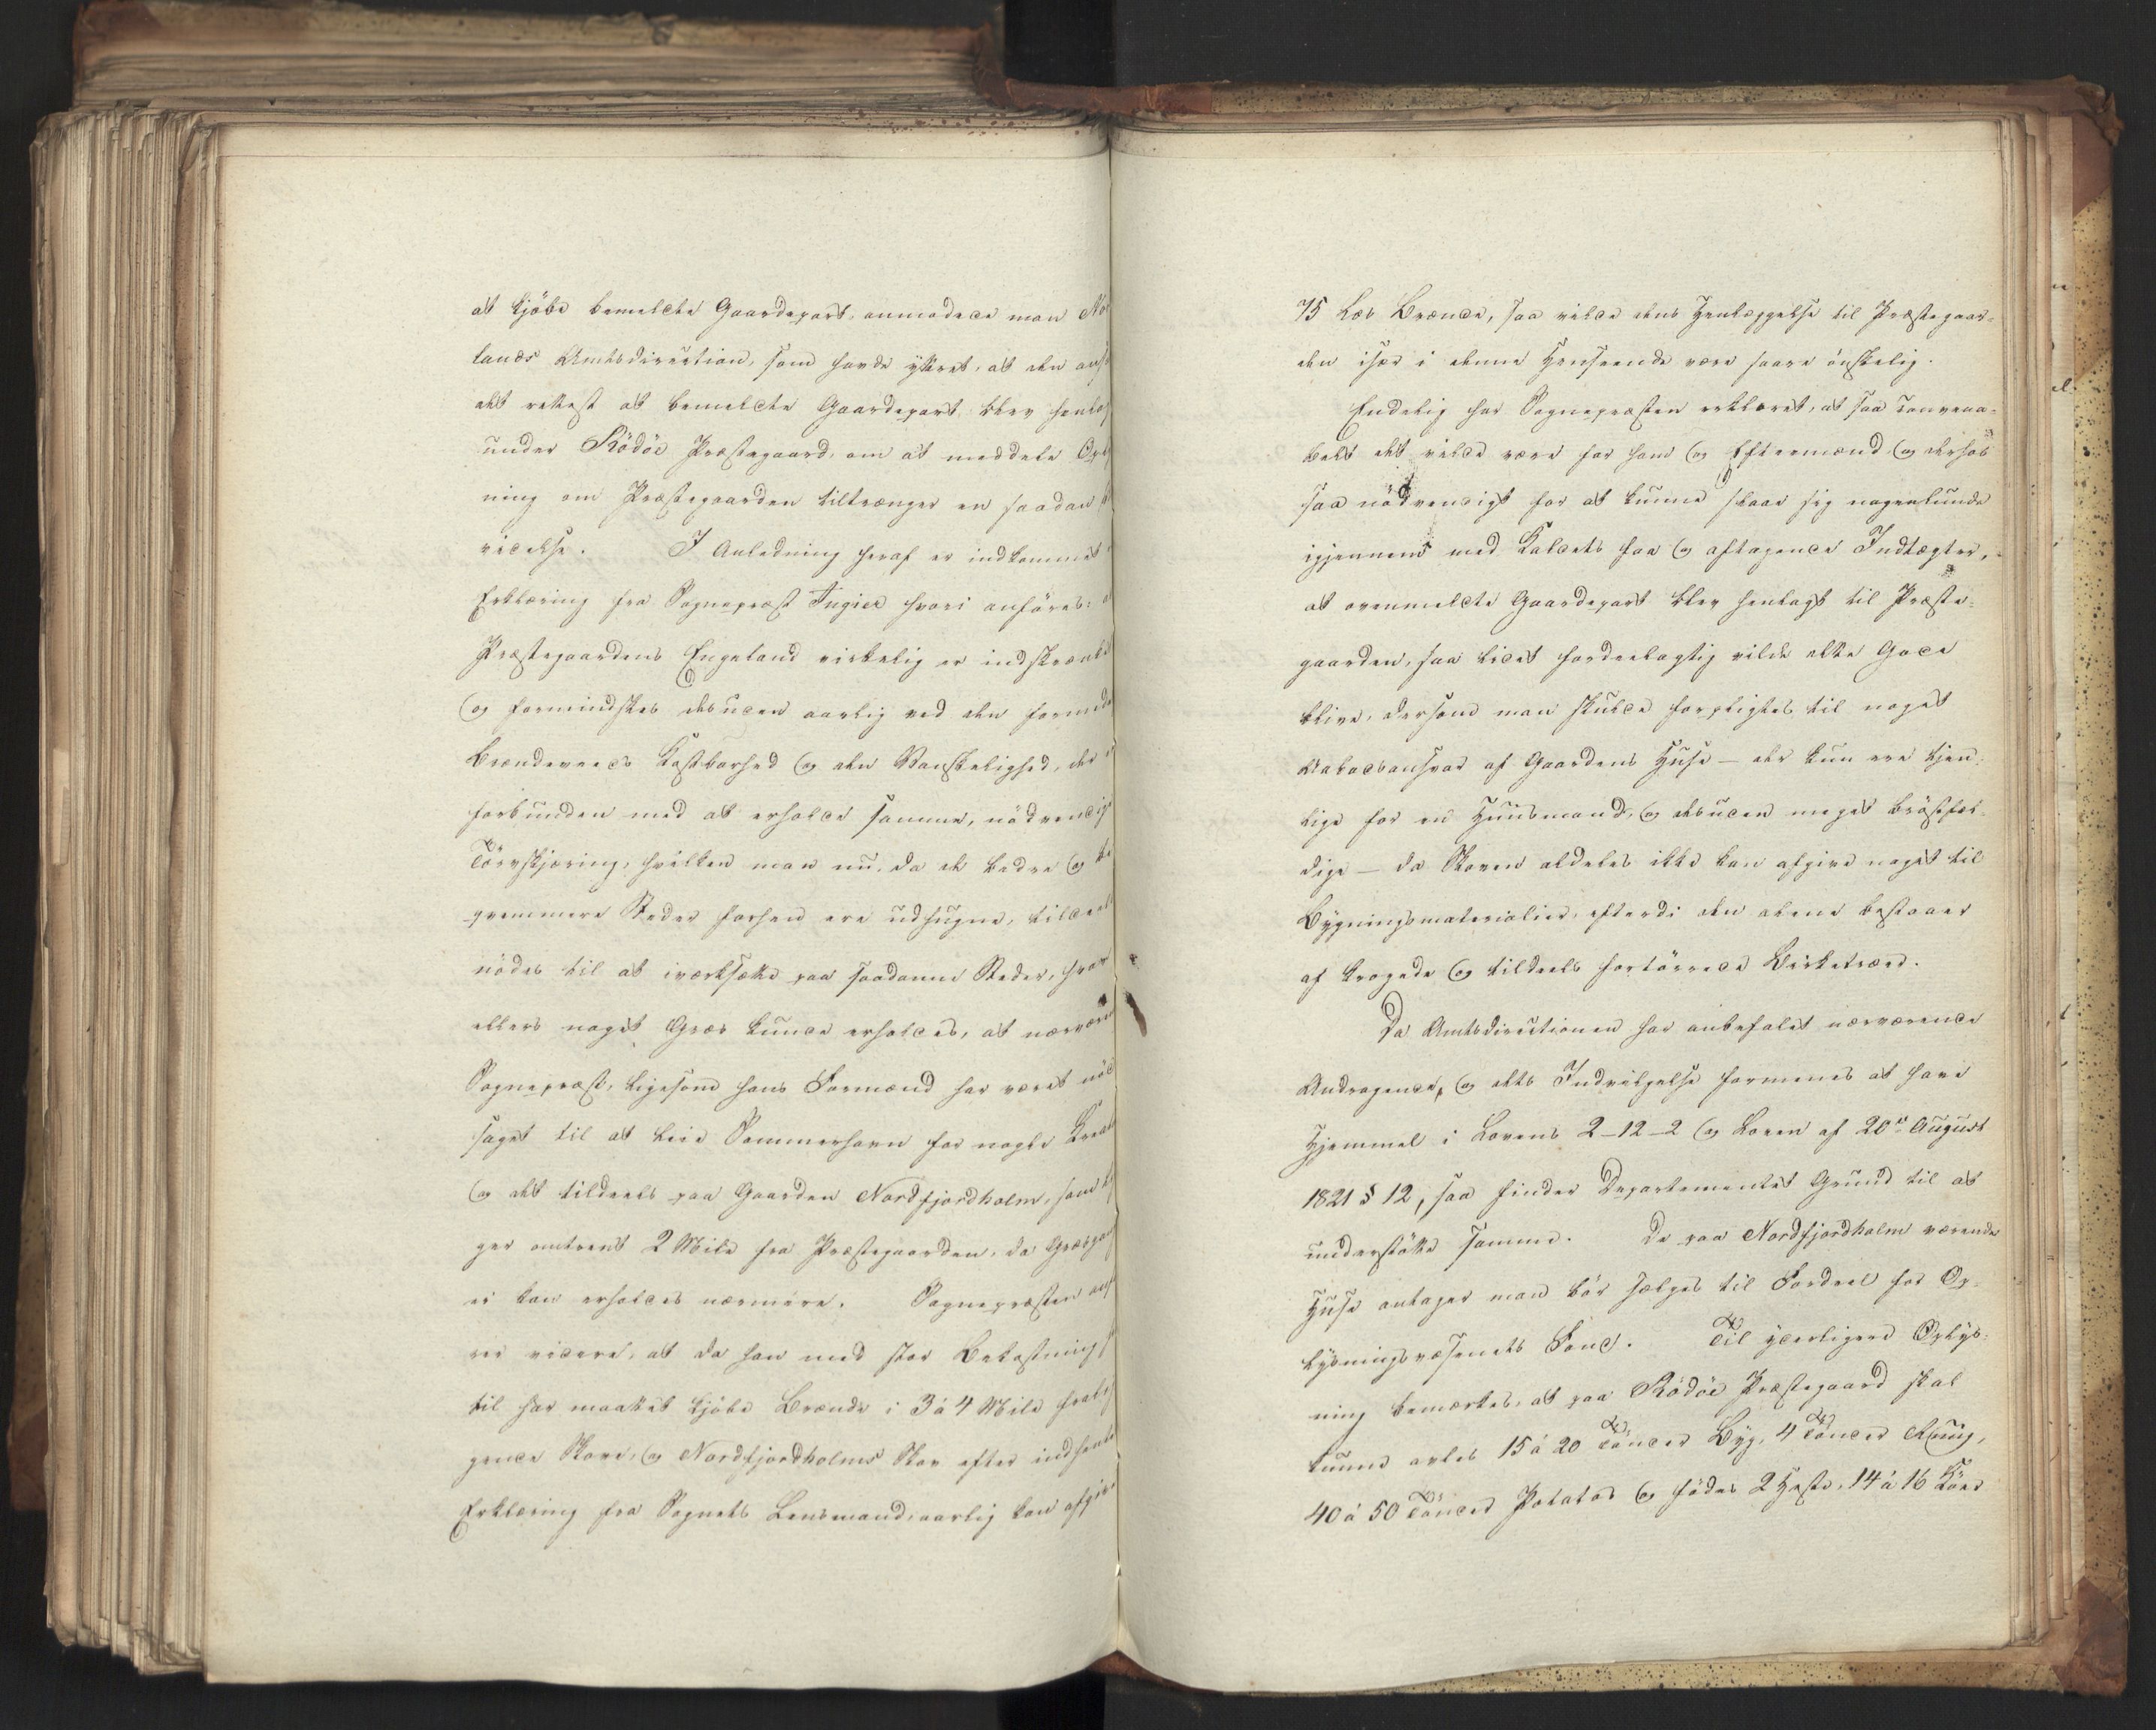 at kjöbe bemeldte Gaardepart, anmodede man Nor
lands Amtsdirection, som havde yttret, at den ans
det rettest at bemeldte Gaardepart blev henlag
under Rödöe Præstegaard, om at meddele Oply
ning om Præstegaarden tiltrænger en saadan
videlse. I Anledning heraf er indkommet
Erklæring fra Sognepræst Angiel hvori anföres:
Præstegaardens Engeland virkelig er indskrænket
og formindskes desuden aarlig ved den formed
Brændeveeds Kostbarhed og den Vanskelighed, der
forbunden med at erholde samme, nödvendig
Törvskjæring, hvilken man nu, da de bedre og be
qvemmere Steder forhen ere udhugne, tildeels
nödes til at iværksætte paa saadanne Steder, hvor
ellers noget Græs kunde erholdes, at nærvære
Sognepræst, ligesom hans Formænd har været nöd
saget til at leie Sommerhavn for nogle Kreat
og det tildeels paa Gaarden Nordfjordholm, som lig
ger omtrent 2 Mile fra Præstegaarden, da Græsgan
ei kan erholdes nærmere. Sognepræsten anf
rer videre, at da han med stor Bekostning
til har maattet kjöbe Brænde i 3 á 4 Mile fralig
gende Skove, og Nordfjordholms Skov efter indhente
Erklæring fra Sognets Lensmand, aarlig kan afgive
75 Læs Brænde, saa vilde dens Henlæggelse til Præstegaar-
den især i denne Henseende være saare önskelig.
Endelig har Sognepræsten erklæret, at saa convena-
belt det vilde være for ham og Eftermænd, og derhos
saa nödvendigt for at kunne slaae sig nogenlunde
igjennem med Kaldets faa og aftagende Indtægter,
at ovenmeldte Gaardepart blev henlagt til Præste-
gaarden, saa lidet fordeelagtig vilde dette Gode
blive, dersom man skulde forpligtes til noget
Aabodsansvar af Gaardens Huse – der kun ere tjen-
lige for en Huusmand, og desuden meget bröstfæl-
dige – da Skoven aldeles ikke kan afgive noget til
Bygningsmaterialier, efterdi den alene bestaaer
af krogede og tildeels fortörrede Birketræer.
Da Amtsdirectionen har anbefalet nærværende
Andragende, og dets Indvilgelse formenes at have
Hjemmel i Lovens 2–12–2 og Loven af 20de August
1821 § 12, saa finder Departementet Grund til at
understötte samme. De paa Nordfjordholm værende
Huse antager man bör sælges til Fordeel for Op-
lysningsvæsenets Fond. Til yderligere Oplys-
ning bemærkes, at paa Rödöe Præstegaard skal
kunne avles 15 á 20 Tönder Byg, 4 Tönder Ruug,
40 á 50 Tönder Potatos og födes 2 Heste, 14 á 16 Köer